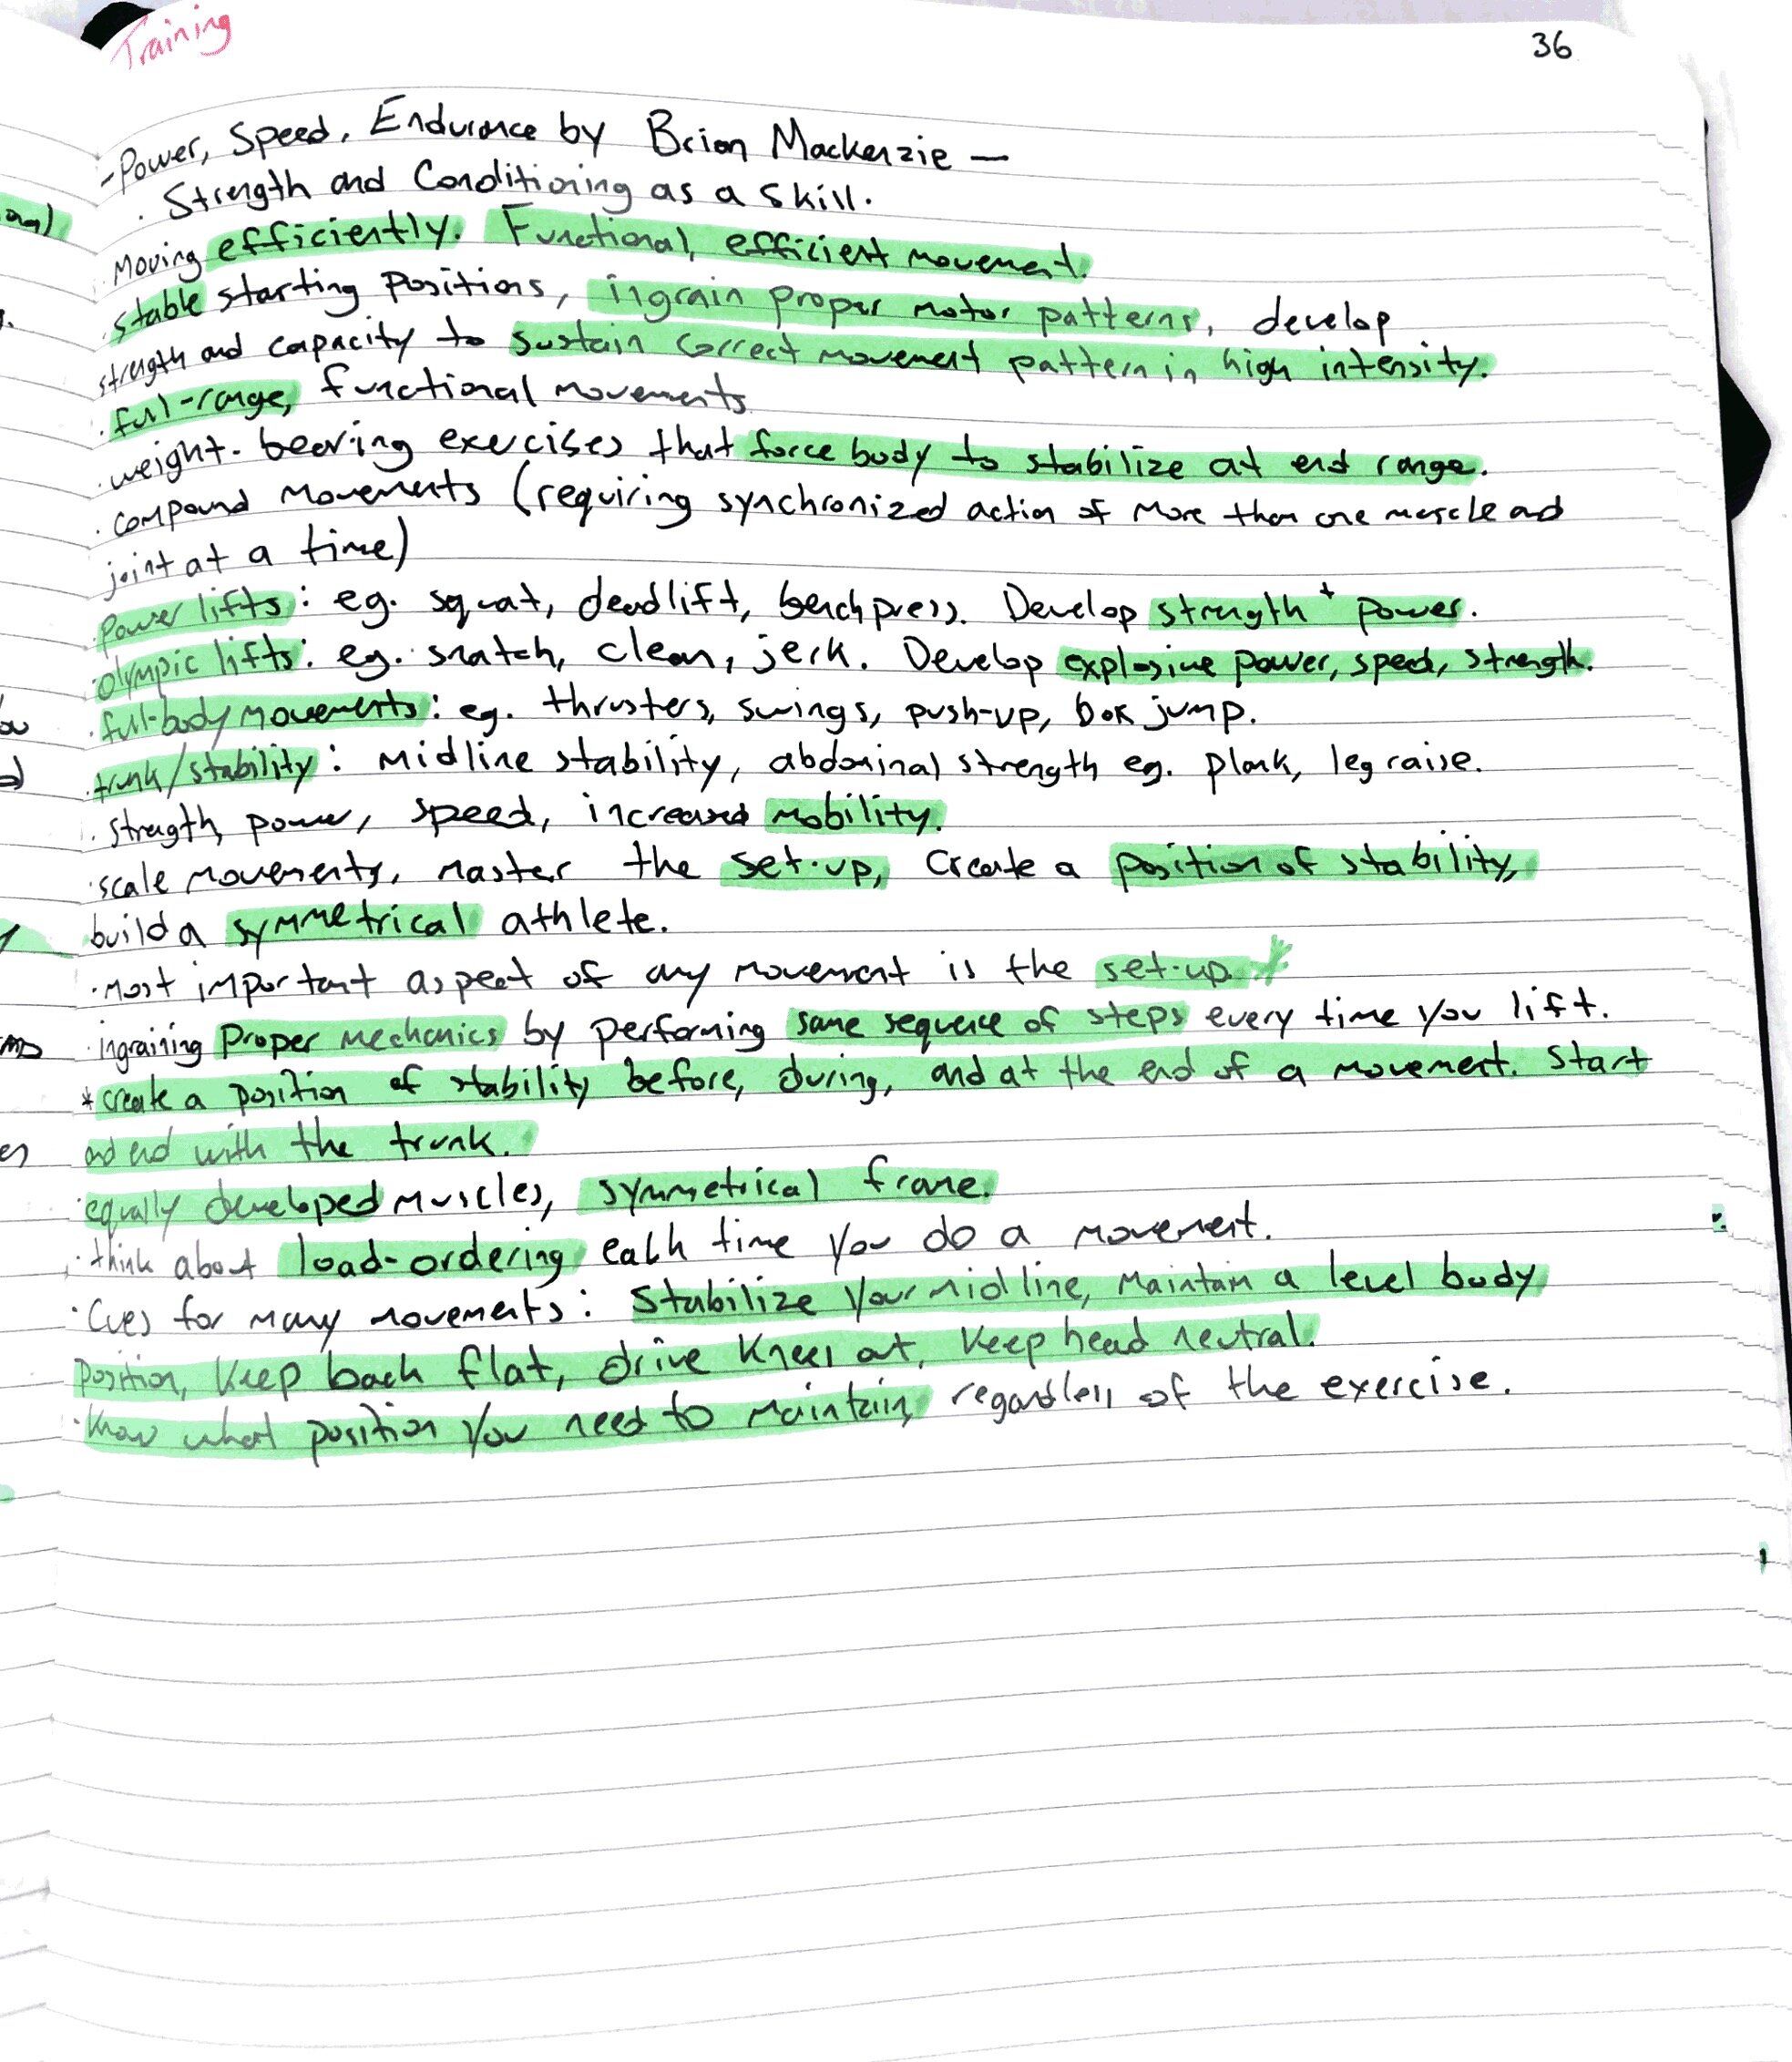 Training
36
-Power, Speed, Endurance by Brian Mackenzie —
· Strength and Conditioning as a skill.
Moving efficiently. Functional, efficient movement.
· stable starting positions, ingrain proper motor patterns, develop
strength and capacity to sustain correct movement pattern in high intensity.
· full-range, functional movements
· weight-bearing exercises that force body to stabilize at end range.
· compound movements (requiring synchronized action of more than one muscle and
joint at a time)
· Power lifts: eg. squat, deadlift, bench press. Develop strength + power.
· olympic lifts: eg. snatch, clean, jerk. Develop explosive power, speed, strength.
· full-body movements: eg. thrusters, swings, push-up, box jump.
trunk/stability: midline stability, abdominal strength eg. plank, leg raise.
· strength, power, speed, increased mobility.
· scale movements, master the set-up, create a position of stability,
build a symmetrical athlete.
· Most important aspect of any movement is the set-up. *
· ingraining proper mechanics by performing same sequence of steps every time you lift.
* create a position of stability before, during, and at the end of a movement. Start
and end with the trunk.
· equally developed muscles, symmetrical frame.
· think about load-ordering each time you do a movement.
· Cues for many movements: Stabilize your midline, maintain a level body
position, keep back flat, drive knees out, keep head neutral.
· Know what position you need to maintain, regardless of the exercise.